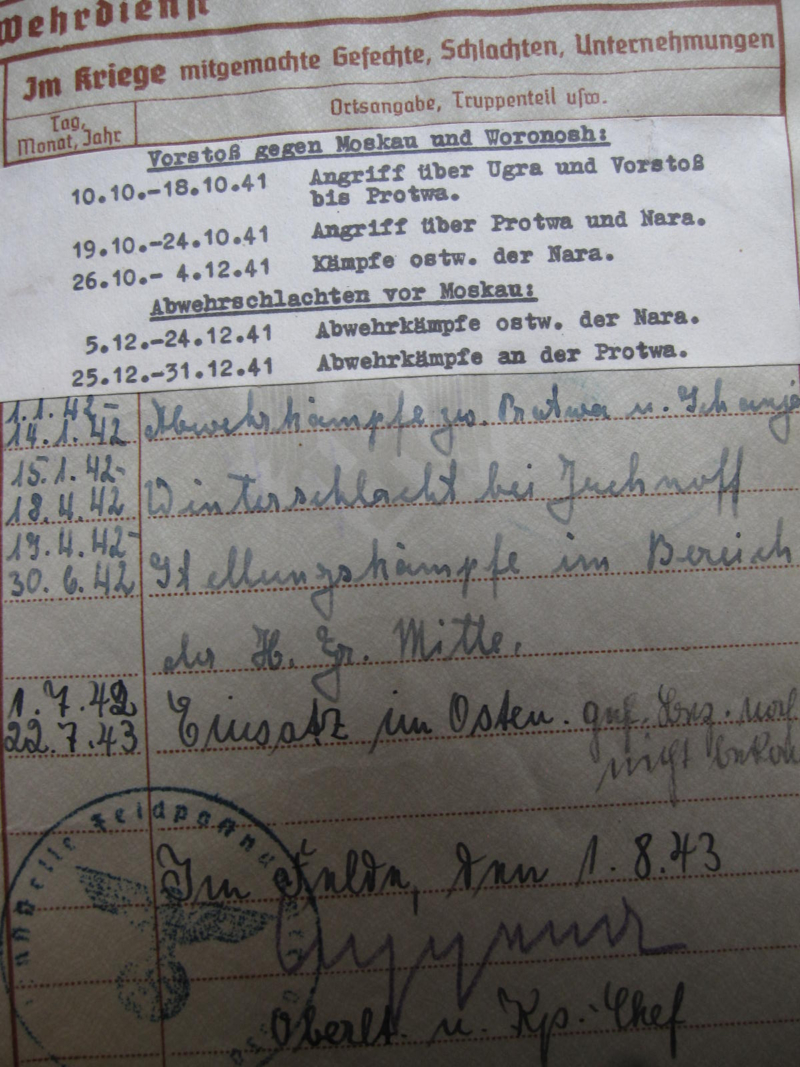 Wehrdienst
Im Kriege mitgemachte Gefechte, Schlachten, Unternehmungen
Tag, Monat, Jahr
Ortsangabe, Truppenteil usw.
Vorstoß gegen Moskau und Woronosh:
10.10.-18.10.41 Angriff über Ugra und Vorstoß
bis Protwa.
19.10.-24.10.41 Angriff über Protwa und Nara.
26.10.- 4.12.41 Kämpfe ostw. der Nara.
Abwehrschlachten vor Moskau:
5.12.-24.12.41 Abwehrkämpfe ostw. der Nara.
25.12.-31.12.41 Abwehrkämpfe an der Protwa.
1.1.42-
14.1.42 Abwehrkämpfe zw. Protwa u.
15.1.42-
18.4.42 Winterschlacht bei Juchnoff
19.4.42-
30.6.42 Stellungskämpfe im Bereich
der H. Gr. Mitte.
1.7.42
22.7.43 Einsatz im Osten. noch
nicht
Im Felde, den 1.8.43
Oberlt. u. Kp.-Chef